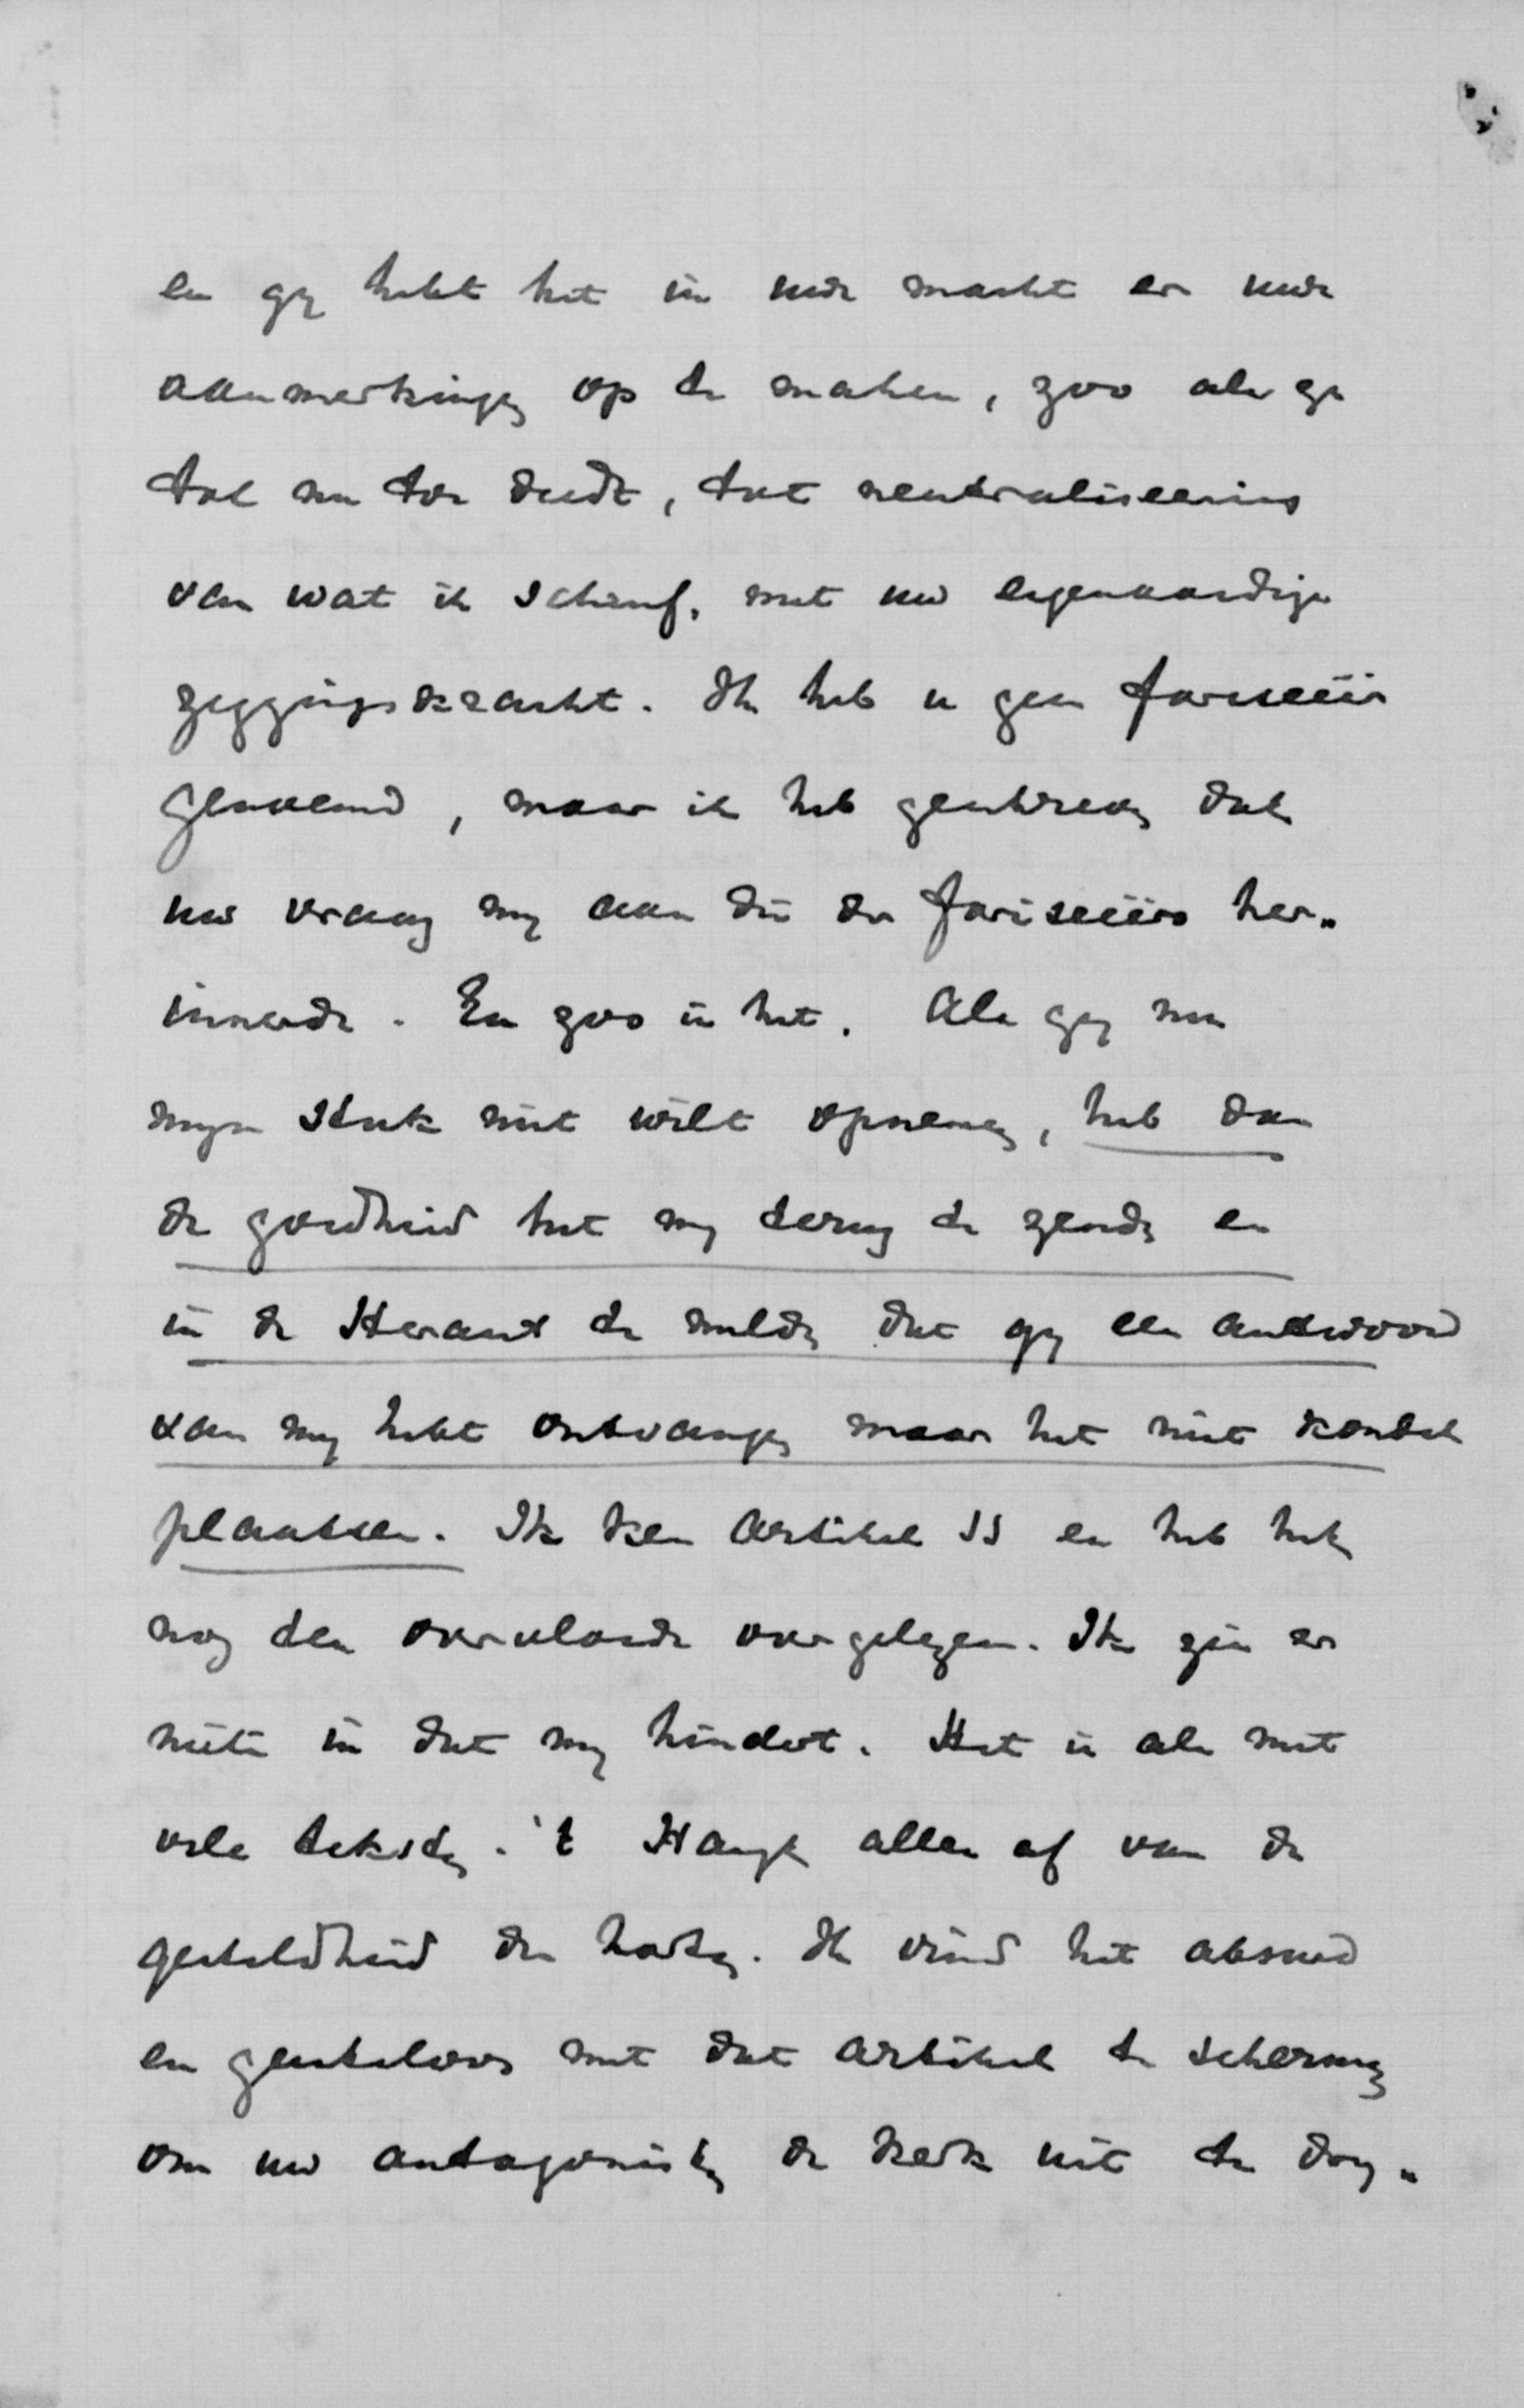 en gy hebt het in uwe macht er uwe
aanmerkingen op te maken, zoo als ge
tot nu toe deedt, tot neutraliseering
van wat ik schreef, met uw eigenaardige
zeggingskracht. Ik heb u geen fariseeër
genoemd, maar ik heb geschreven dat
uw vraag my aan die der fariseeërs her„
innerde. En zoo is het. Als gy nu
myn stuk niet wilt opnemen, heb dan
de goedheid het my terug te zenden en
in de Heraut te melden dat gy een antwoord
van my hebt ontvangen maar het niet kondet
plaatsen. Ik ken Artikel en heb het
nog ten overvloede overgelezen. Ik zie er
niets in dat my hindert. Het is als met
vele teksten. 't Hangt alles af van de
gesteldheid des harten. Ik vind het absurd
en geesteloos met dat artikel te schermen
om uw antagonisten de kerk uit te dry„